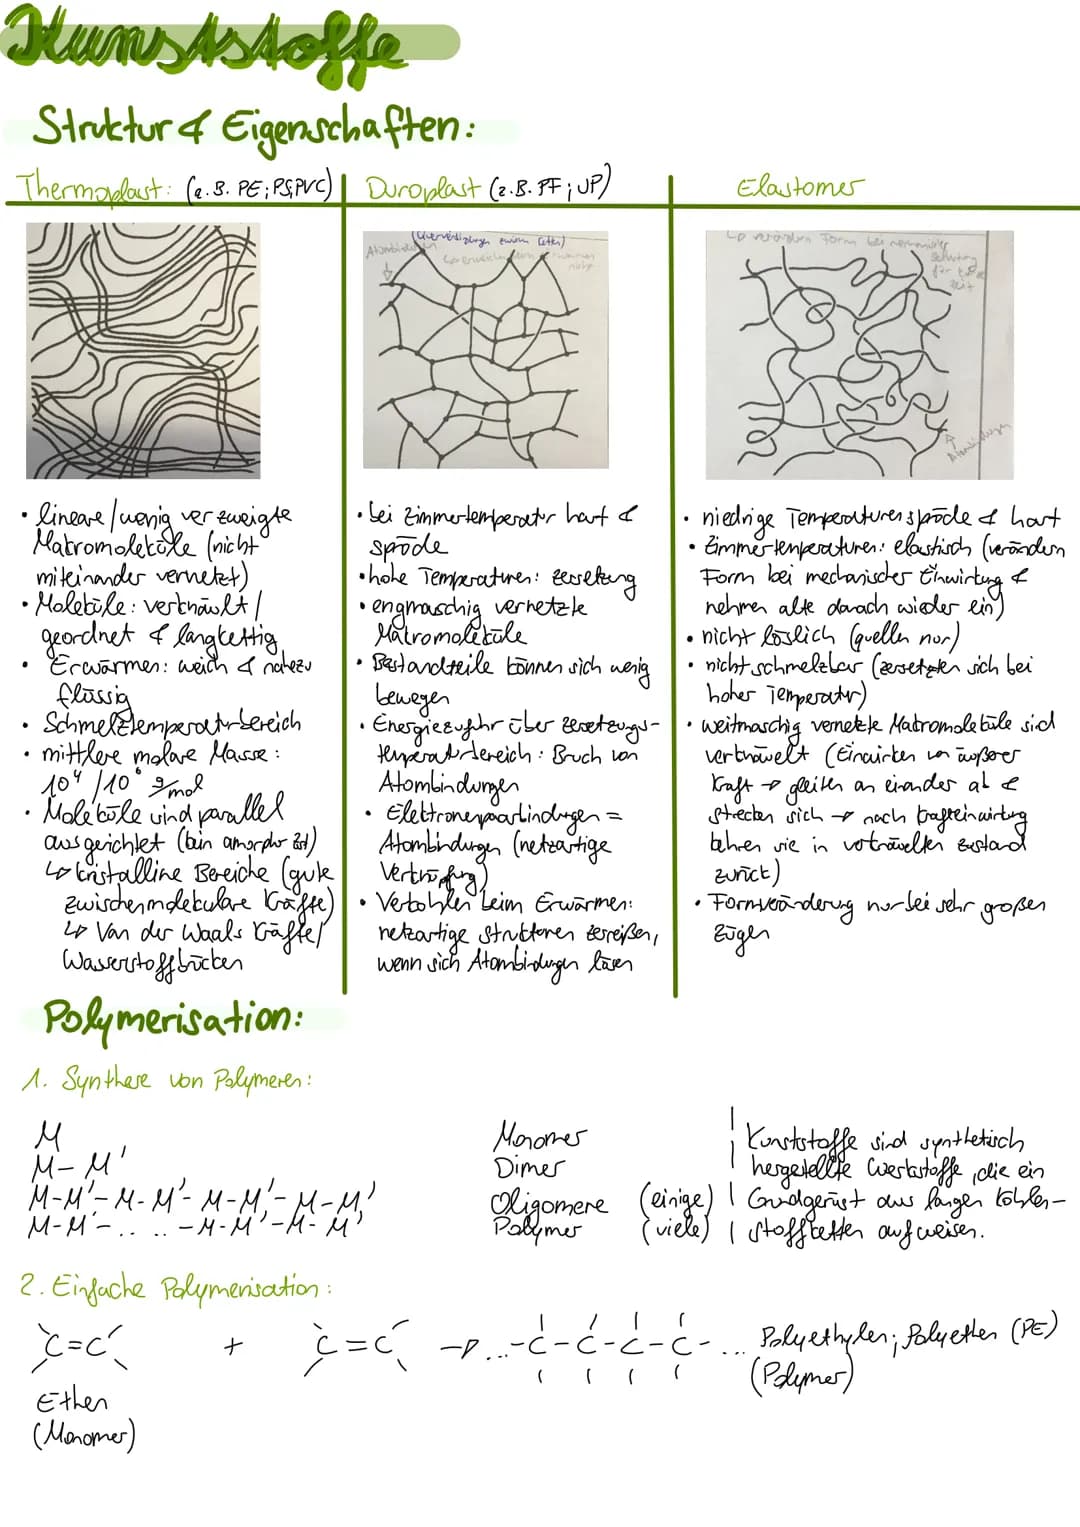 Kunststoffe
Struktur & Eigenschaften:
Thermoplast: (z.B. PE; PS; PVC)
• lineare/wenig verzweigte
Makromoleküle (nicht
miteinander vernetzt)
• Moleküle: verknäult /
geordnet & langkettig
• Erwärmen: weich & nahezu
flüssig
• Schmelztemperaturbereich
• mittlere molare Masse:
10⁴/10⁶ g/mol
• Moleküle sind parallel
ausgerichtet (kein amorpher Zst)
↳ kristalline Bereiche (gute
zwischenmolekulare Kräfte)
↳ Van der Waals Kräfte/
Wasserstoffbrücken
Duroplast (z.B. PF; UP)
Atombindungen
• bei Zimmertemperatur hart &
spröde
• hohe Temperaturen: Zersetzung
• engmaschig vernetzte
Makromoleküle
• Bestandteile können sich wenig
bewegen
• Energiezufuhr über Zersetzungs-
temperaturbereich: Bruch von
Atombindungen
• Elektronenpaarbindungen =
Atombindungen (netzartige
Verknüpfung)
• Verkohlen beim Erwärmen:
netzartige Strukturen zerreißen,
wenn sich Atombindungen lösen
Elastomer
↳ verändern Form bei
für
Zeit
Atombindungen
• niedrige Temperaturen spröde & hart
• Zimmertemperaturen: elastisch (verändern
Form bei mechanischer Einwirkung &
nehmen alte danach wieder ein)
• nicht löslich (quellen nur)
• nicht schmelzbar (zersetzten sich bei
hoher Temperatur)
• weitmaschig vernetzte Makromoleküle sid
verknäuelt (Einwirken von äußerer
Kraft → gleiten an einander ab &
strecken sich → nach Krafteinwirkung
kehren sie in verknäuelten Zustand
zurück)
• Formveränderung nur bei sehr großen
Zügen
Polymerisation:
1. Synthese von Polymeren:
M Monomer
M-M' Dimer
M-M'-M-M'-M-M'-M-M' Oligomere (einige)
M-M'-.. .. -M-M'-M-M' Polymer (viele)
Kunststoffe sind synthetisch
hergestellte Werkstoffe, die ein
Grundgerüst aus langen Kohlen-
stoffketten aufweisen.
2. Einfache Polymerisation:
C=C + C=C → ...-C-C-C-C-... Polyethylen; Polyethen (PE)
(Polymer)
Ethen
(Monomer)